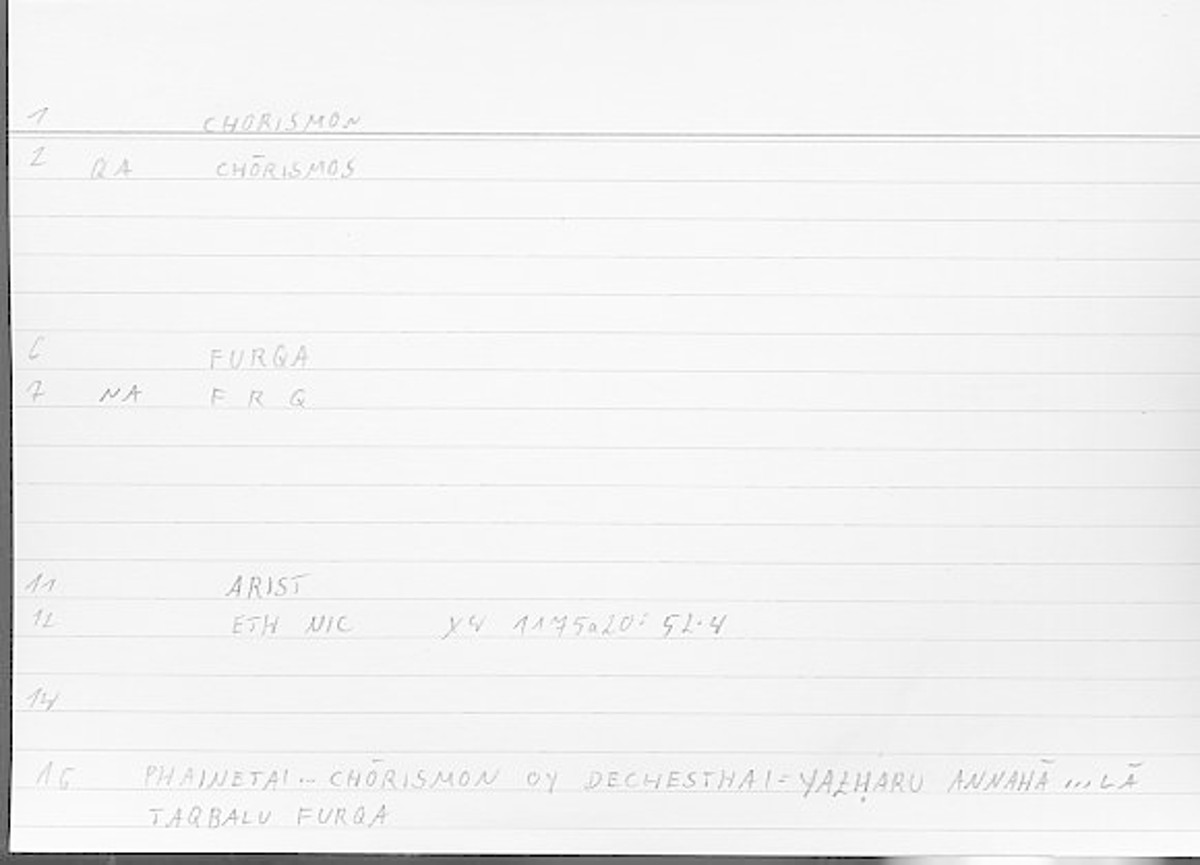 1 CHORISMON
2 QA CHŌRISMOS
6 FURQA
7 NA F R Q
11 ARIST
12 ETH NIC X4 1175a20: 52.4
14
16 PHAINETAI... CHŌRISMON OY DECHESTHAI = YAẒHARU ANNAHĀ ... LĀ
TAQBALU FURQA